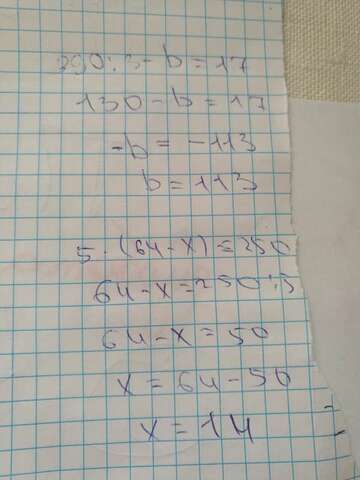 390:3-b=17
130-b=17
-b=-113
b=113
5·(64-x)=250
64-x=250:5
64-x=50
x=64-50
x=14